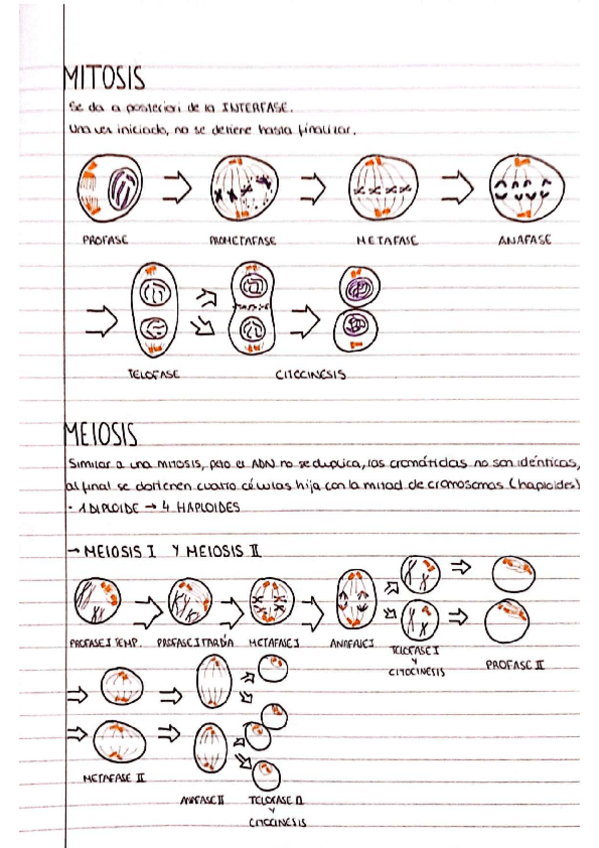 MITOSIS
Se da a posteriori de la INTERFASE.
Una vez iniciado, no se detiene hasta finalizar.
PROFASE
PROMETAFASE
METAFASE
ANAFASE
TELOFASE
CITOCINESIS
MEIOSIS
Similar a una mitosis, pero el ADN no se duplica, las cromátidas no son idénticas,
al final se obtienen cuatro células hija con la mitad de cromosomas (haploides)
- 1 DIPLOIDE → 4 HAPLOIDES
→ MEIOSIS I Y MEIOSIS II
PROFASE I TEMP.
PROFASE I TARDÍA
METAFASE I
ANAFASE I
TELOFASE I
Y
CITOCINESIS
PROFASE II
METAFASE II
ANAFASE II
TELOFASE II
Y
CITOCINESIS